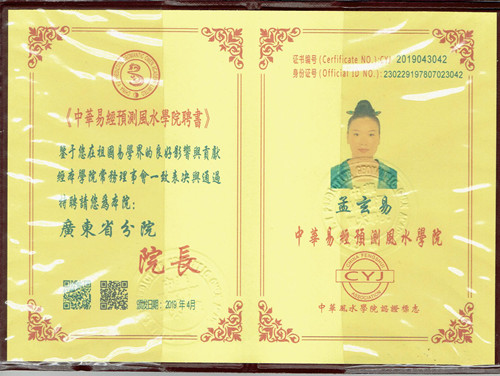 《中華易經預測風水學院聘書》
鉴于您在祖国易學界的良好影響與貢獻
經本學院常務理事會一致表决與通過
特聘請您為本院:
廣東省分院
院長
颁发日期:2019年4月
证书编号(Cerfificate NO.):CYJ 2019043042
身份证号(Official ID NO.):230229197807023042
孟玄易
中華易經預測風水學院
CYJ
中華風水學院認證標志